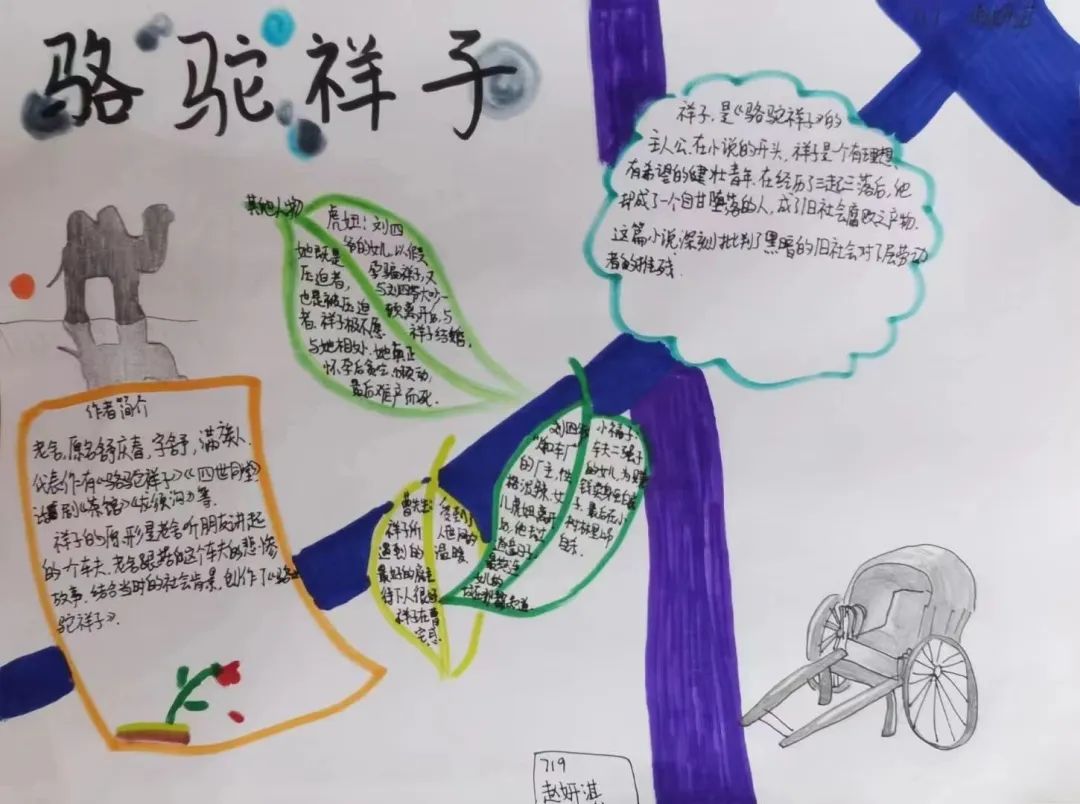 骆驼祥子
祥子,是《骆驼祥子》的
主人公,在小说的开头,祥子是个有理想、
有希望的健壮青年,在经历了三起三落后,他
却成了一个自甘堕落的人,成了旧社会腐败之产物.
这篇小说深刻批判了黑暗的旧社会对下层劳动
者的摧残.
其他人物
虎妞:刘四
爷的女儿,以假
孕骗祥子,又
与刘四爷大吵一
顿离开后,与
祥子结婚,
她既是
压迫者,
也是被压迫
者.祥子极不愿
与她相处.她真正
怀孕后贪吃、懒动,
最后难产而死.
作者简介
老舍,原名舒庆春,字舒,满族人.
代表作有《骆驼祥子》《四世同堂》
话剧《茶馆》《龙须沟》等.
祥子的原形是老舍听朋友讲起
的一个车夫.老舍跟据这个车夫的悲惨
故事,结合当时的社会背景,创作了《骆
驼祥子》.
刘四爷
车厂
的厂主,性
格泼辣,女
儿虎妞离开
后,他去过
小福子
车夫二强子
的女儿,为
钱卖身
子,最后在小
树林里上吊
自杀.
曹先生
祥子所
遇到的
最好的雇主
待下人很好
祥子在曹
宅感
受到了
人世间的
温暖.
719
赵妍淇